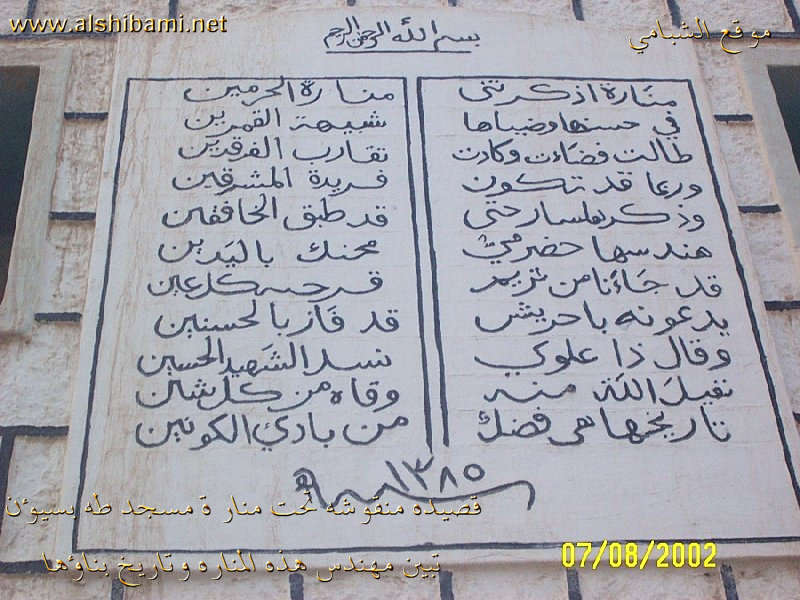 www.alshibami.net
موقع الشبامي
بسم الله الرحمن الرحيم
منارة اذكرتني منارة الحرمين
في حسنها وضياها شبيهة القمرين
طالت فضاءت وكادت تقارب الفرقدين
وربما قد تكون فريدة المشرقين
وذكرها سار حتى قد طبق الخافقين
هندسها حضرمي محنك باليدين
قد جاءنا من تريم قرحبه كل عين
يدعونه باحريش قد فاز بالحسنيين
وقال ذا علوي نسل الشهيد الحسين
تقبل الله منه وقاه من كل شين
تاريخها هي فضلك من بادئ الكونين
سنة ١٣٨٥ هـ
قصيده منقوشه تحت منارة مسجد طه بسيوؤن
تبين مهندس هذه المناره وتاريخ بناؤها
07/08/2002